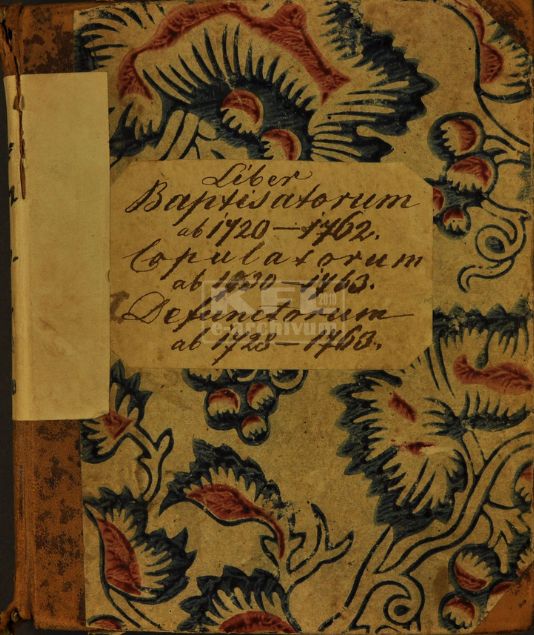 Liber
Baptisatorum
ab 1720—1762.
Copulatorum
ab 1730—1763.
Defunctorum
ab 1728—1763.
KFL
2010
e-archivum